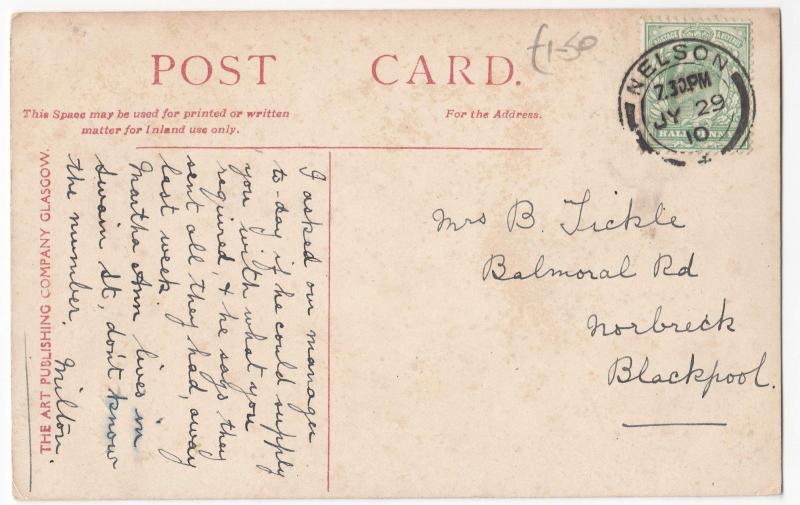 POST CARD.
£1-50
This Space may be used for printed or written
matter for Inland use only.
For the Address.
NELSON
7.30PM
JY 29
10
POSTAGE & REVENUE
HALFPENNY
I asked our manager
to-day if he could supply
you with what you
required, & he says they
sent all they had, away
last week.
Martha Ann lives in
Swain St, don't know
the number. Milton.
Mrs B. Tickle
Balmoral Rd
Norbreck
Blackpool.
THE ART PUBLISHING COMPANY GLASGOW.